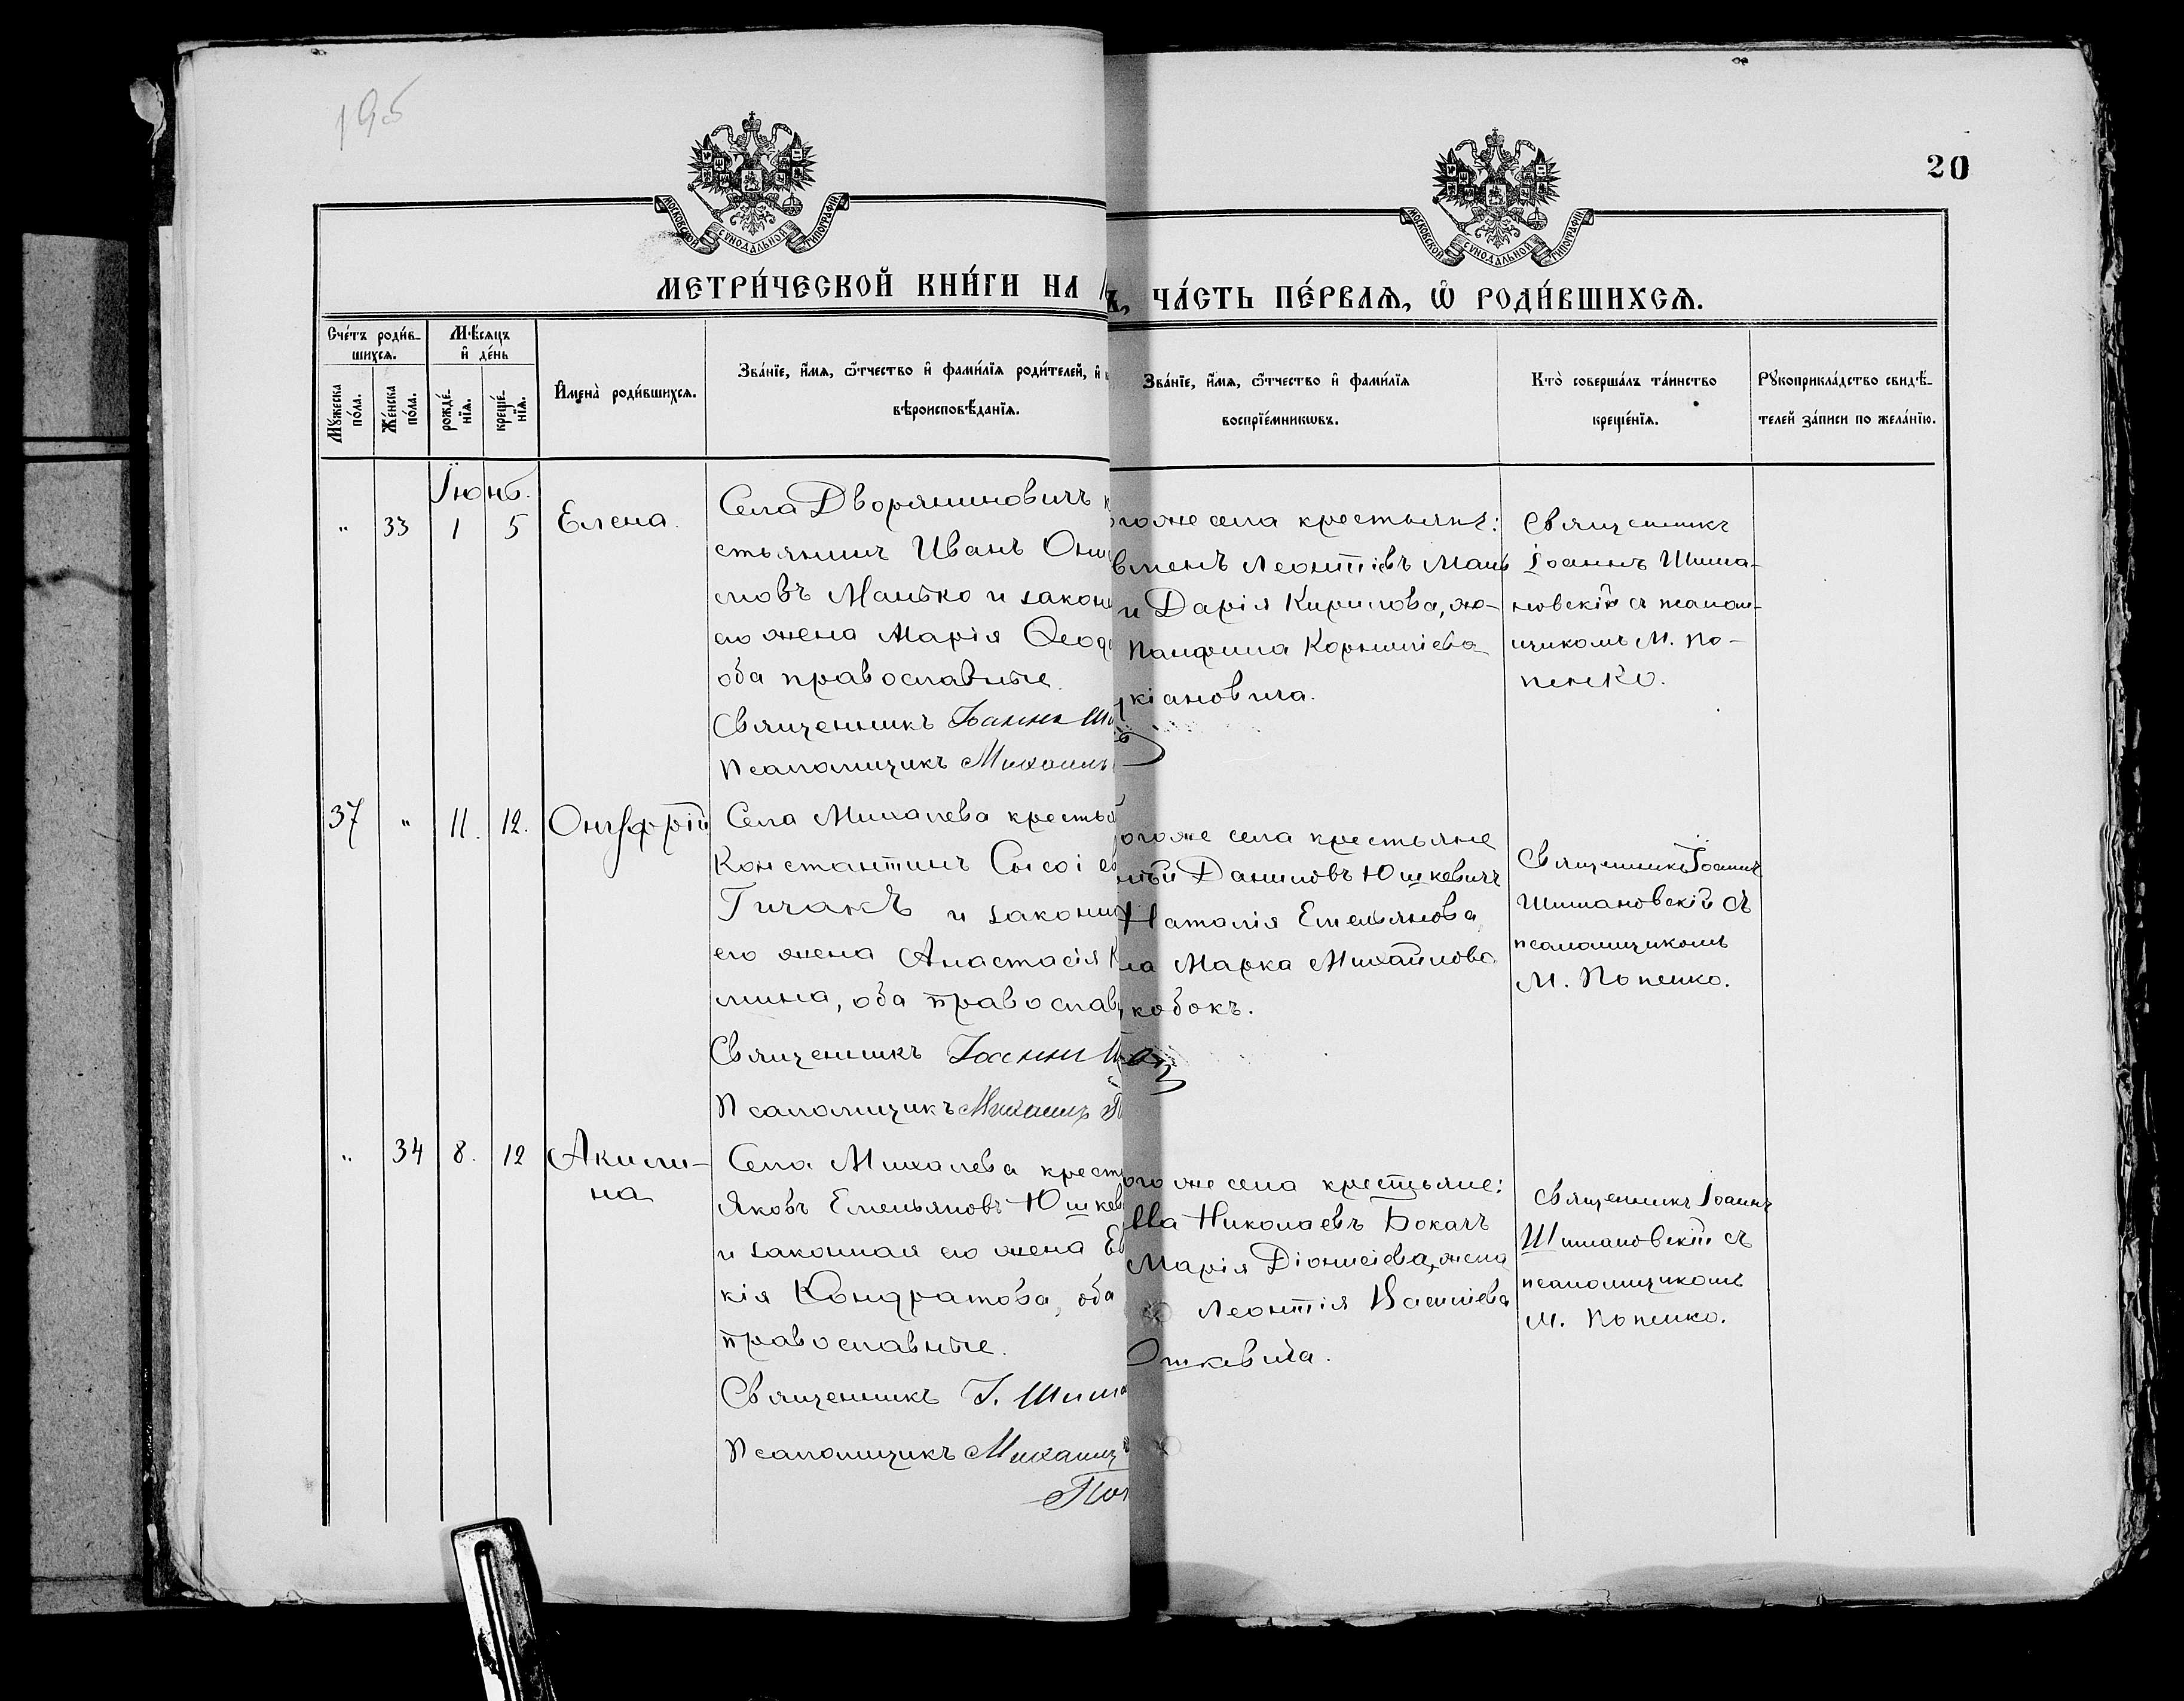 195
20
МОСКОВСКОЙ СѴНОДАЛЬНОЙ ТИПОГРАФІИ
МОСКОВСКОЙ СѴНОДАЛЬНОЙ ТИПОГРАФІИ
МЕТРИ́ЧЕСКОЙ КНИ́ГИ НА
Ъ, ЧА́СТЬ ПЕ́РВАѦ, Ѡ҆ РОДИ́ВШИХСѦ.
Сче́тъ роди́в-
шихсѧ.
Мꙋ́жеска по́ла.
Же́нска по́ла.
Мѣ́сѧцъ
и҆ де́нь
рожде́-
нїѧ.
креще́-
нїѧ.
И҆мена̀ роди́вшихсѧ.
Зва́нїе, и҆́мѧ, ѻ҆́тчество и҆ фами́лїѧ роди́телей, и҆
вѣроисповѣ́данїѧ.
Зва́нїе, и҆́мѧ, ѻ҆́тчество и҆ фами́лїѧ
воспрїе́мникѡвъ.
Кто̀ соверша́лъ та́инство
креще́нїѧ.
Рꙋкоприкла́дство свидѣ́-
телей за́писи по жела́нїю.
Іюнь.
" 33 1 5 Елена.
Села Дворяниновичъ к
стьянинъ Иванъ Они
мовъ Манько и закон
его жена Марія Ѳеод
оба православные.
Священникъ Іоаннъ Ши
Псаломщикъ Михаилъ
огоже села крестьяне:
вменъ Леонтіевъ Мань
и Дарія Кирилова, же-
Панфила Корниліева
кіановича.
Священникъ
Іоаннъ Шима-
новскій съ псалом-
щикомъ М. По-
пенко.
37 " 11. 12. Онуфрій
Села Михалева кресть
Константинъ Сысоіев
Гичакъ и законн
его жена Анастасія К
мина, оба православ
Священникъ Іоаннъ Ш
Псаломщикъ Михаилъ П
огоже села крестьяне
Даниловъ Юшкевичъ
Наталія Емельянова
на Марка Михайлова
кобокъ.
Священникъ Іоаннъ
Шимановскій съ
псаломщикомъ
М. Попенко.
" 34 8. 12 Акили-
на
Села Михалева крест
Яковъ Емельяновъ Юшкев
и законная его жена Ев
кія Кондратова, оба
православные.
Священникъ І. Шима
Псаломщикъ Михаилъ
Поп
огоже села крестьяне:
Николаевъ Бокачъ
Марія Діонисіева, жена
Леонтія Василіева
Юшкевича.
Священникъ Іоаннъ
Шимановскій съ
псаломщикомъ
М. Попенко.